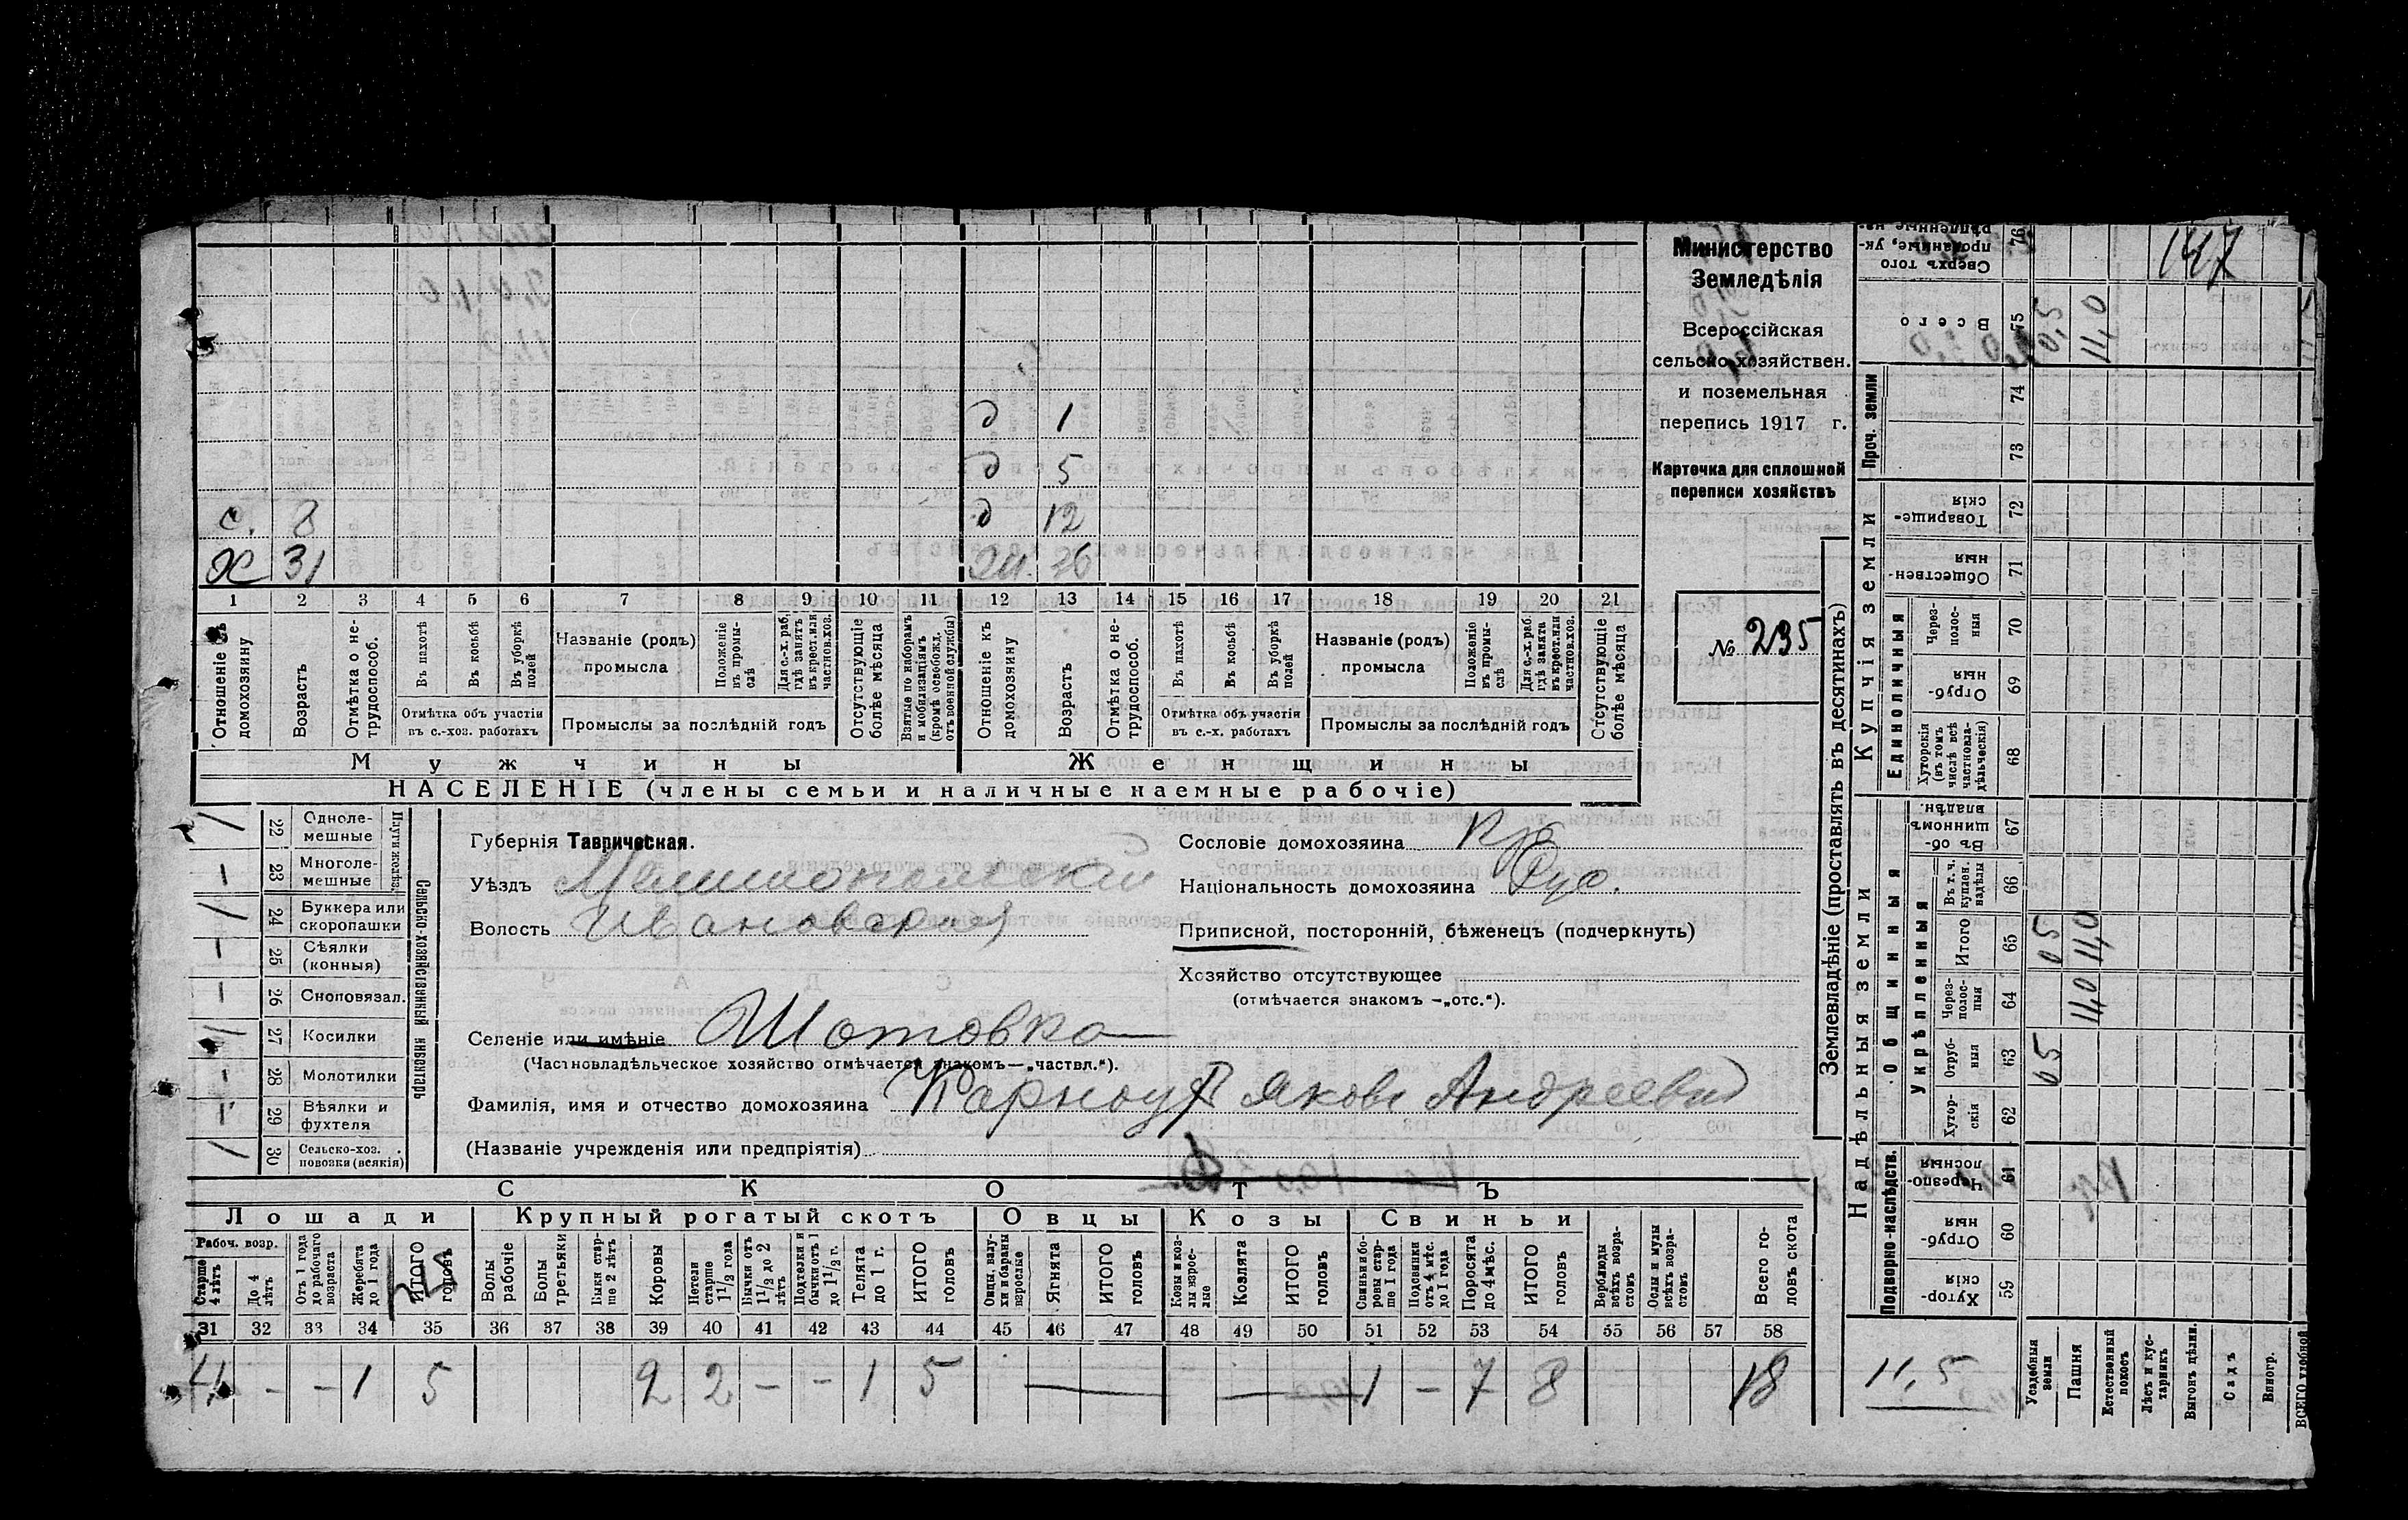 Министерство
Земледѣлія
Всероссійская
сельско-хозяйствен.
и поземельная
перепись 1917 г.
Карточка для сплошной
переписи хозяйствъ
№ 235
д 1
д 5
с. 8 д 12
Х 31 36
1 2 3 4 5 6 7 8 9 10 11 12 13 14 15 16 17 18 19 20 21
Отношеніе къ домохозяину
Возрастъ
Отмѣтка о не-трудоспособ.
Въ пахотѣ
Въ косьбѣ
Въ уборкѣ полей
Отмѣтка объ участіи въ с.-хоз. работахъ
Названіе (родъ) промысла
Положеніе въ промы-слѣ
Для с.-х. раб. гдѣ занятъ въ крест. или частнов. хоз.
Промыслы за послѣдній годъ
Отсутствующіе болѣе мѣсяца
Взятые по наборамъ и мобилизаціямъ (кромѣ освобожд. отъ военной службы)
Отношеніе къ домохозяину
Возрастъ
Отмѣтка о не-трудоспособ.
Въ пахотѣ
Въ косьбѣ
Въ уборкѣ полей
Отмѣтка объ участіи въ с.-х. работахъ
Названіе (родъ) промысла
Положеніе въ промы-слѣ
Для с.-х. раб. гдѣ занята въ крест. или частнов. хоз.
Промыслы за послѣдній годъ
Отсутствующіе болѣе мѣсяца
Мужчины Женщины
НАСЕЛЕНІЕ (члены семьи и наличные наемные рабочіе)
Сельско-хозяйственный инвентарь
22 Одноле-мешные
23 Многоле-мешные
24 Буккера или скоропашки
25 Сѣялки (конныя)
26 Сноповязал.
27 Косилки
28 Молотилки
29 Вѣялки и фухтеля
30 Сельско-хоз. повозки (всякія)
Губернія Таврическая.
Уѣздъ Мелитопольскій
Волость Ивановская
Селеніе или имѣніе Шотовка
(Частновладѣльческое хозяйство отмѣчается знакомъ—„частвл.“).
Фамилія, имя и отчество домохозяина Карноух Яковъ Андреевич
(Названіе учрежденія или предпріятія)
Сословіе домохозяина Кр
Національность домохозяина Рус.
Приписной, посторонній, бѣженецъ (подчеркнуть)
Хозяйство отсутствующее
(отмѣчается знакомъ —„отс.“).
СКОТЪ
Лошади Крупный рогатый скотъ Овцы Козы Свиньи
Рабоч. возр.
Старше 4 лѣтъ
До 4 лѣтъ
Отъ 1 года до рабочаго возраста
Жеребята до 1 года
ИТОГО головъ
Волы рабочіе
Волы третьяки
Быки стар-ше 2 лѣтъ
Коровы
Нетели старше 1 1/2 года
Бычки отъ 1 1/2 до 2 лѣтъ
Подтелки и бычки отъ 1 до 1 1/2 г.
Телята до 1 г.
ИТОГО головъ
Овцы, валу-хи и бараны взрослые
Ягнята
ИТОГО головъ
Козы и коз-лы взрос-лые
Козлята
ИТОГО головъ
Свиньи и бо-ровы стар-ше 1 года
Подсвинки отъ 4 мѣс. до 1 года
Поросята до 4 мѣс.
ИТОГО головъ
Верблюды всѣхъ возра-стовъ
Ослы и мулы всѣхъ возра-стовъ
Всего го-ловъ скота
31 32 33 34 35 36 37 38 39 40 41 42 43 44 45 46 47 48 49 50 51 52 53 54 55 56 57 58
4 - - 1 5 2 2 - - 1 5 1 - 7 8 18
Землевладѣніе (проставлять въ десятинахъ)
Надѣльныя земли
Купчія земли
Проч. земли
Подворно-наслѣдств.
Общинныя
Укрѣпленныя
Единоличныя
59 Хутор-скія
60 Отруб-ныя
61 Черезпо-лосныя
62 Хутор-скія
63 Отруб-ныя
64 Через-полос-ныя
65 Итого
66 Въ т. ч. куплен. надѣлы
67 Въ об-щинномъ владѣн.
68 Хуторскія (въ томъ числѣ всѣ частновла-дѣльческія)
69 Отруб-ныя
70 Через-полос-ныя
71 Обществен-ныя
72 Товарище-скія
73
74
75 Всего
76 Сверхъ того проданные, ук-
147
0,5 11,0
05 11,0
11,0
05
11,5
Усадебныя земли
Пашня
Естественный покосъ
Лѣсъ и кус-тарникъ
Выгонъ цѣлин.
Садъ
Виногр.
ВСЕГО удобной